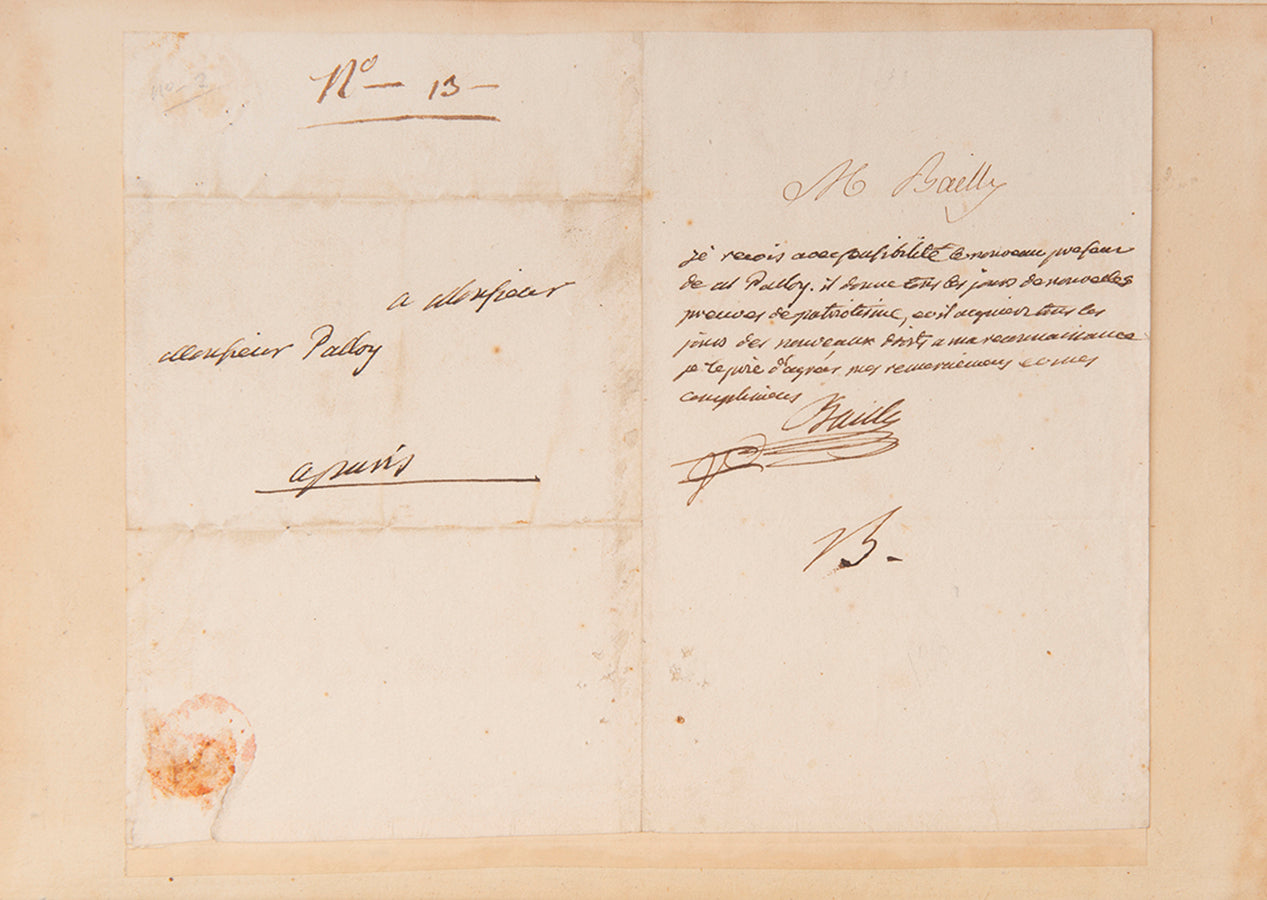 no 7
No — 13 —
a Monsieur
Monsieur Palloy
a paris
M Bailly
je recois avec sensibilité le nouveau present
de M Palloy. il donne tous les jours de nouvelles
preuves de patriotisme, et il acquiert tous les
jours des nouveaux droits a ma reconnaissance
je le prie d'agréer mes remerciemens et mes
complimens
Bailly